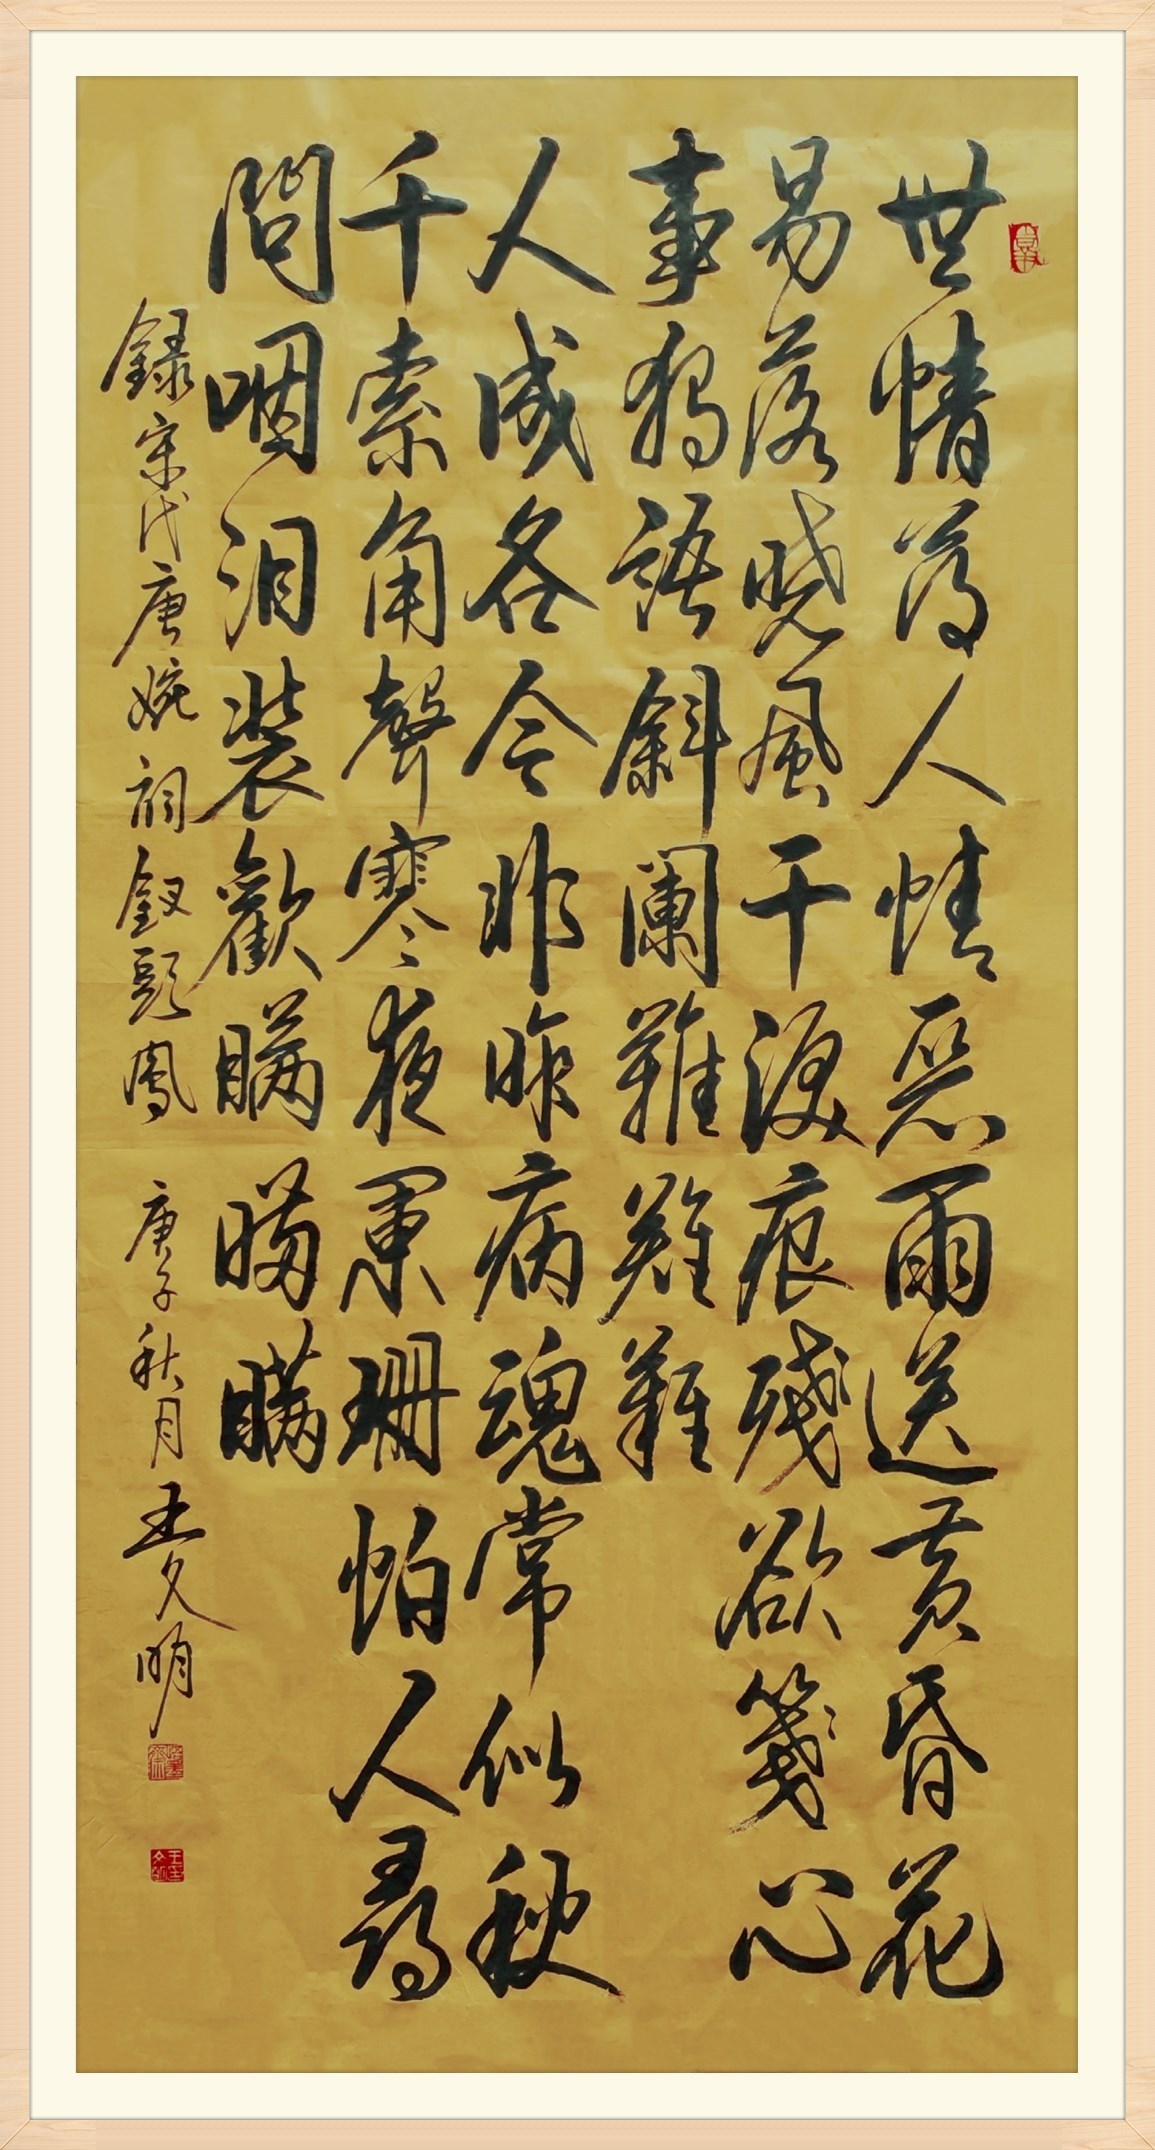 世情薄人情惡雨送黃昏花
易落曉風干淚痕殘欲箋心
事獨語斜闌難難難
人成各今非昨病魂常似秋
千索角聲寒夜闌珊怕人尋
問咽泪裝歡瞞瞞瞞
錄宋代唐婉詞釵頭鳳 庚子秋月王文明